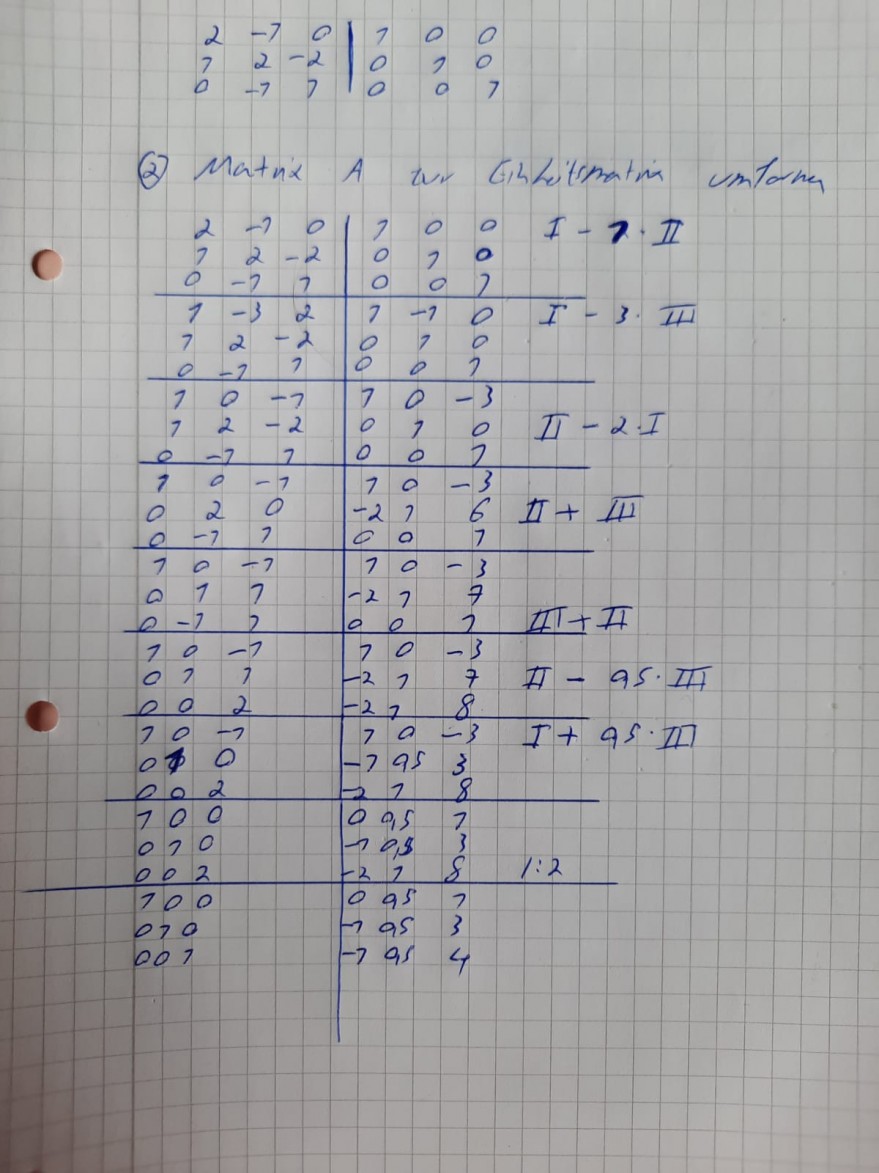 2 -1 0 | 1 0 0
1 2 -2 | 0 1 0
0 -1 1 | 0 0 1
② Matrix A zur Einheitsmatrix umformen
2 -1 0 | 1 0 0 I - 1 · II
1 2 -2 | 0 1 0
0 -1 1 | 0 0 1
1 -3 2 | 1 -1 0 I - 3 · III
1 2 -2 | 0 1 0
0 -1 1 | 0 0 1
1 0 -1 | 1 0 -3
1 2 -2 | 0 1 0 II - 2 · I
0 -1 1 | 0 0 1
1 0 -1 | 1 0 -3
0 2 0 | -2 1 6 II + III
0 -1 1 | 0 0 1
1 0 -1 | 1 0 -3
0 1 1 | -2 1 7
0 -1 1 | 0 0 1 III + II
1 0 -1 | 1 0 -3
0 1 1 | -2 1 7 II - 0,5 · III
0 0 2 | -2 1 8
1 0 -1 | 1 0 -3 I + 0,5 · III
0 1 0 | -1 0,5 3
0 0 2 | -2 1 8
1 0 0 | 0 0,5 1
0 1 0 | -1 0,5 3
0 0 2 | -2 1 8 | : 2
1 0 0 | 0 0,5 1
0 1 0 | -1 0,5 3
0 0 1 | -1 0,5 4